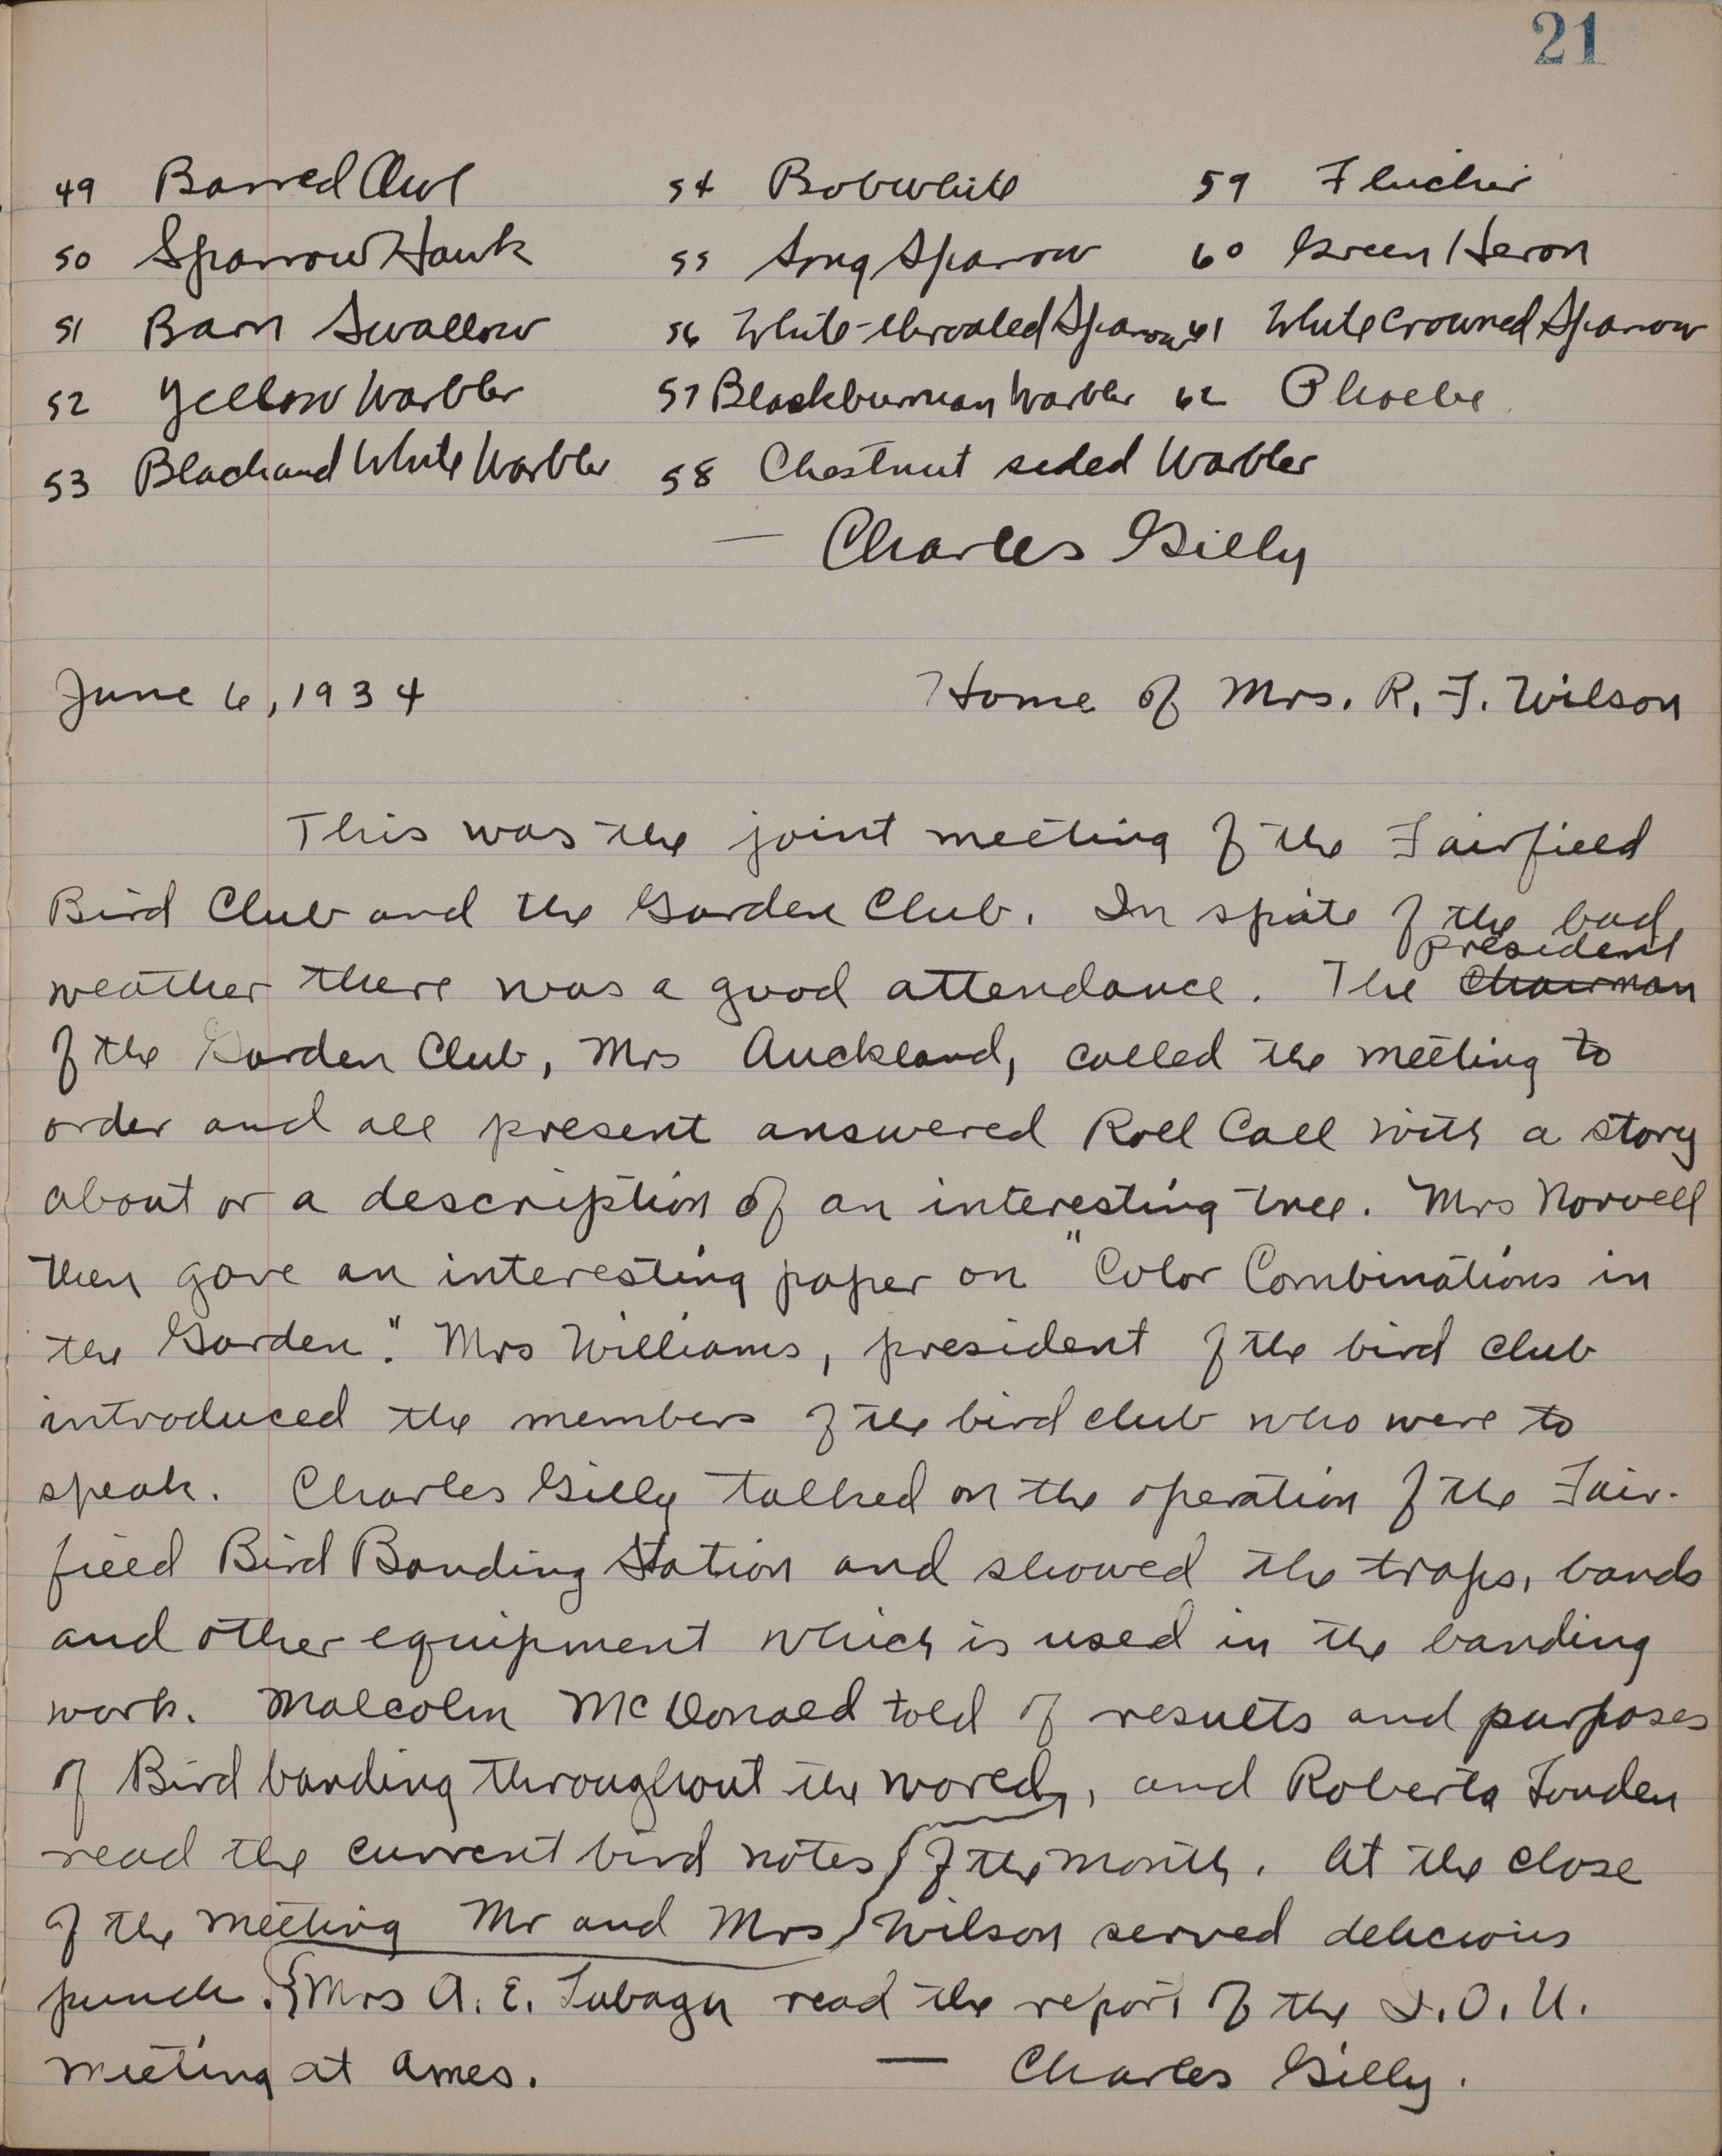 21
49 Barred Owl 54 Bobwhite 59 Flicker
50 Sparrow Hawk 55 Song Sparrow 60 Green Heron
51 Barn Swallow 56 White-throated Sparrow 61 White Crowned Sparrow
52 Yellow Warbler 57 Blackburnian Warbler 62 Phoebe
53 Black and White Warbler 58 Chestnut sided Warbler
— Charles Gilly
June 6, 1934 Home of Mrs. R. F. Wilson
This was the joint meeting of the Fairfield
Bird Club and the Garden Club. In spite of the bad
president
weather there was a good attendance. The Chairman
of the Garden Club, Mrs Auckland, called the meeting to
order and all present answered Roll Call with a story
about or a description of an interesting tree. Mrs Norvell
then gave an interesting paper on "Color Combinations in
the Garden". Mrs Williams, president of the bird club
introduced the members of the bird club who were to
speak. Charles Gilly talked on the operation of the Fair-
field Bird Banding Station and showed the traps, bands
and other equipment which is used in the banding
work. Malcolm McDonald told of results and purposes
of Bird banding throughout the world, and Roberta Louden
read the current bird notes of the month. At the close
of the meeting Mr and Mrs Wilson served delicious
punch. Mrs A. E. read the report of the I.O.U.
meeting at Ames. — Charles Gilly.